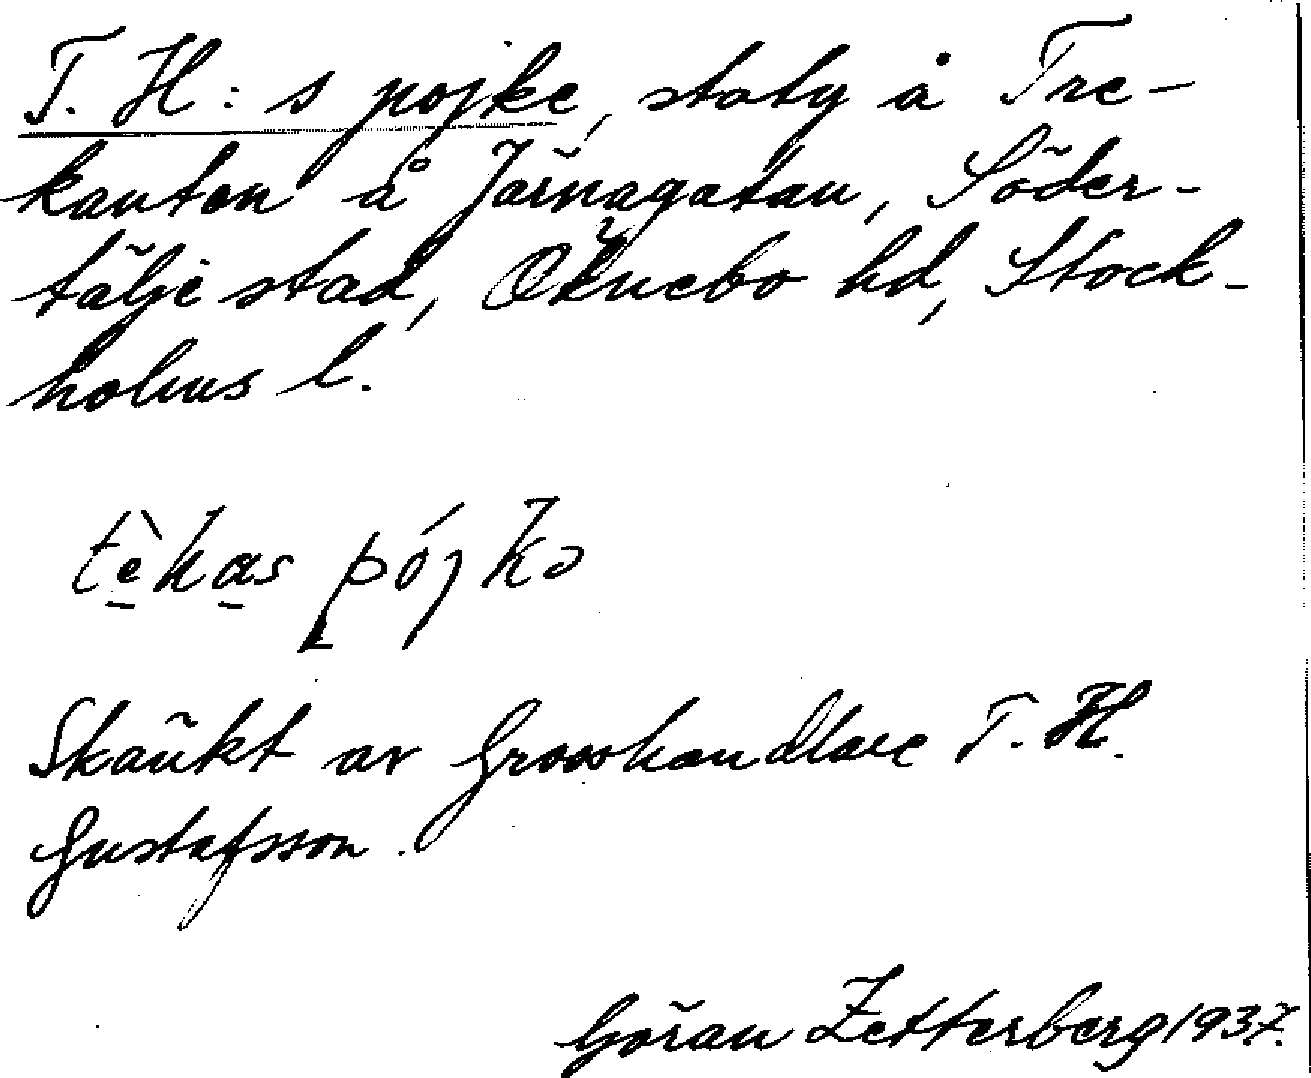 T. H:s pojke, staty å Tre-
kanten å Järnagatan, Söder-
tälje stad, Öknebo hd, Stock-
holms l.
tèhas pójkə
Skänkt av Grosshandlare T. H.
Gustafsson.
Göran Zetterberg 1937.